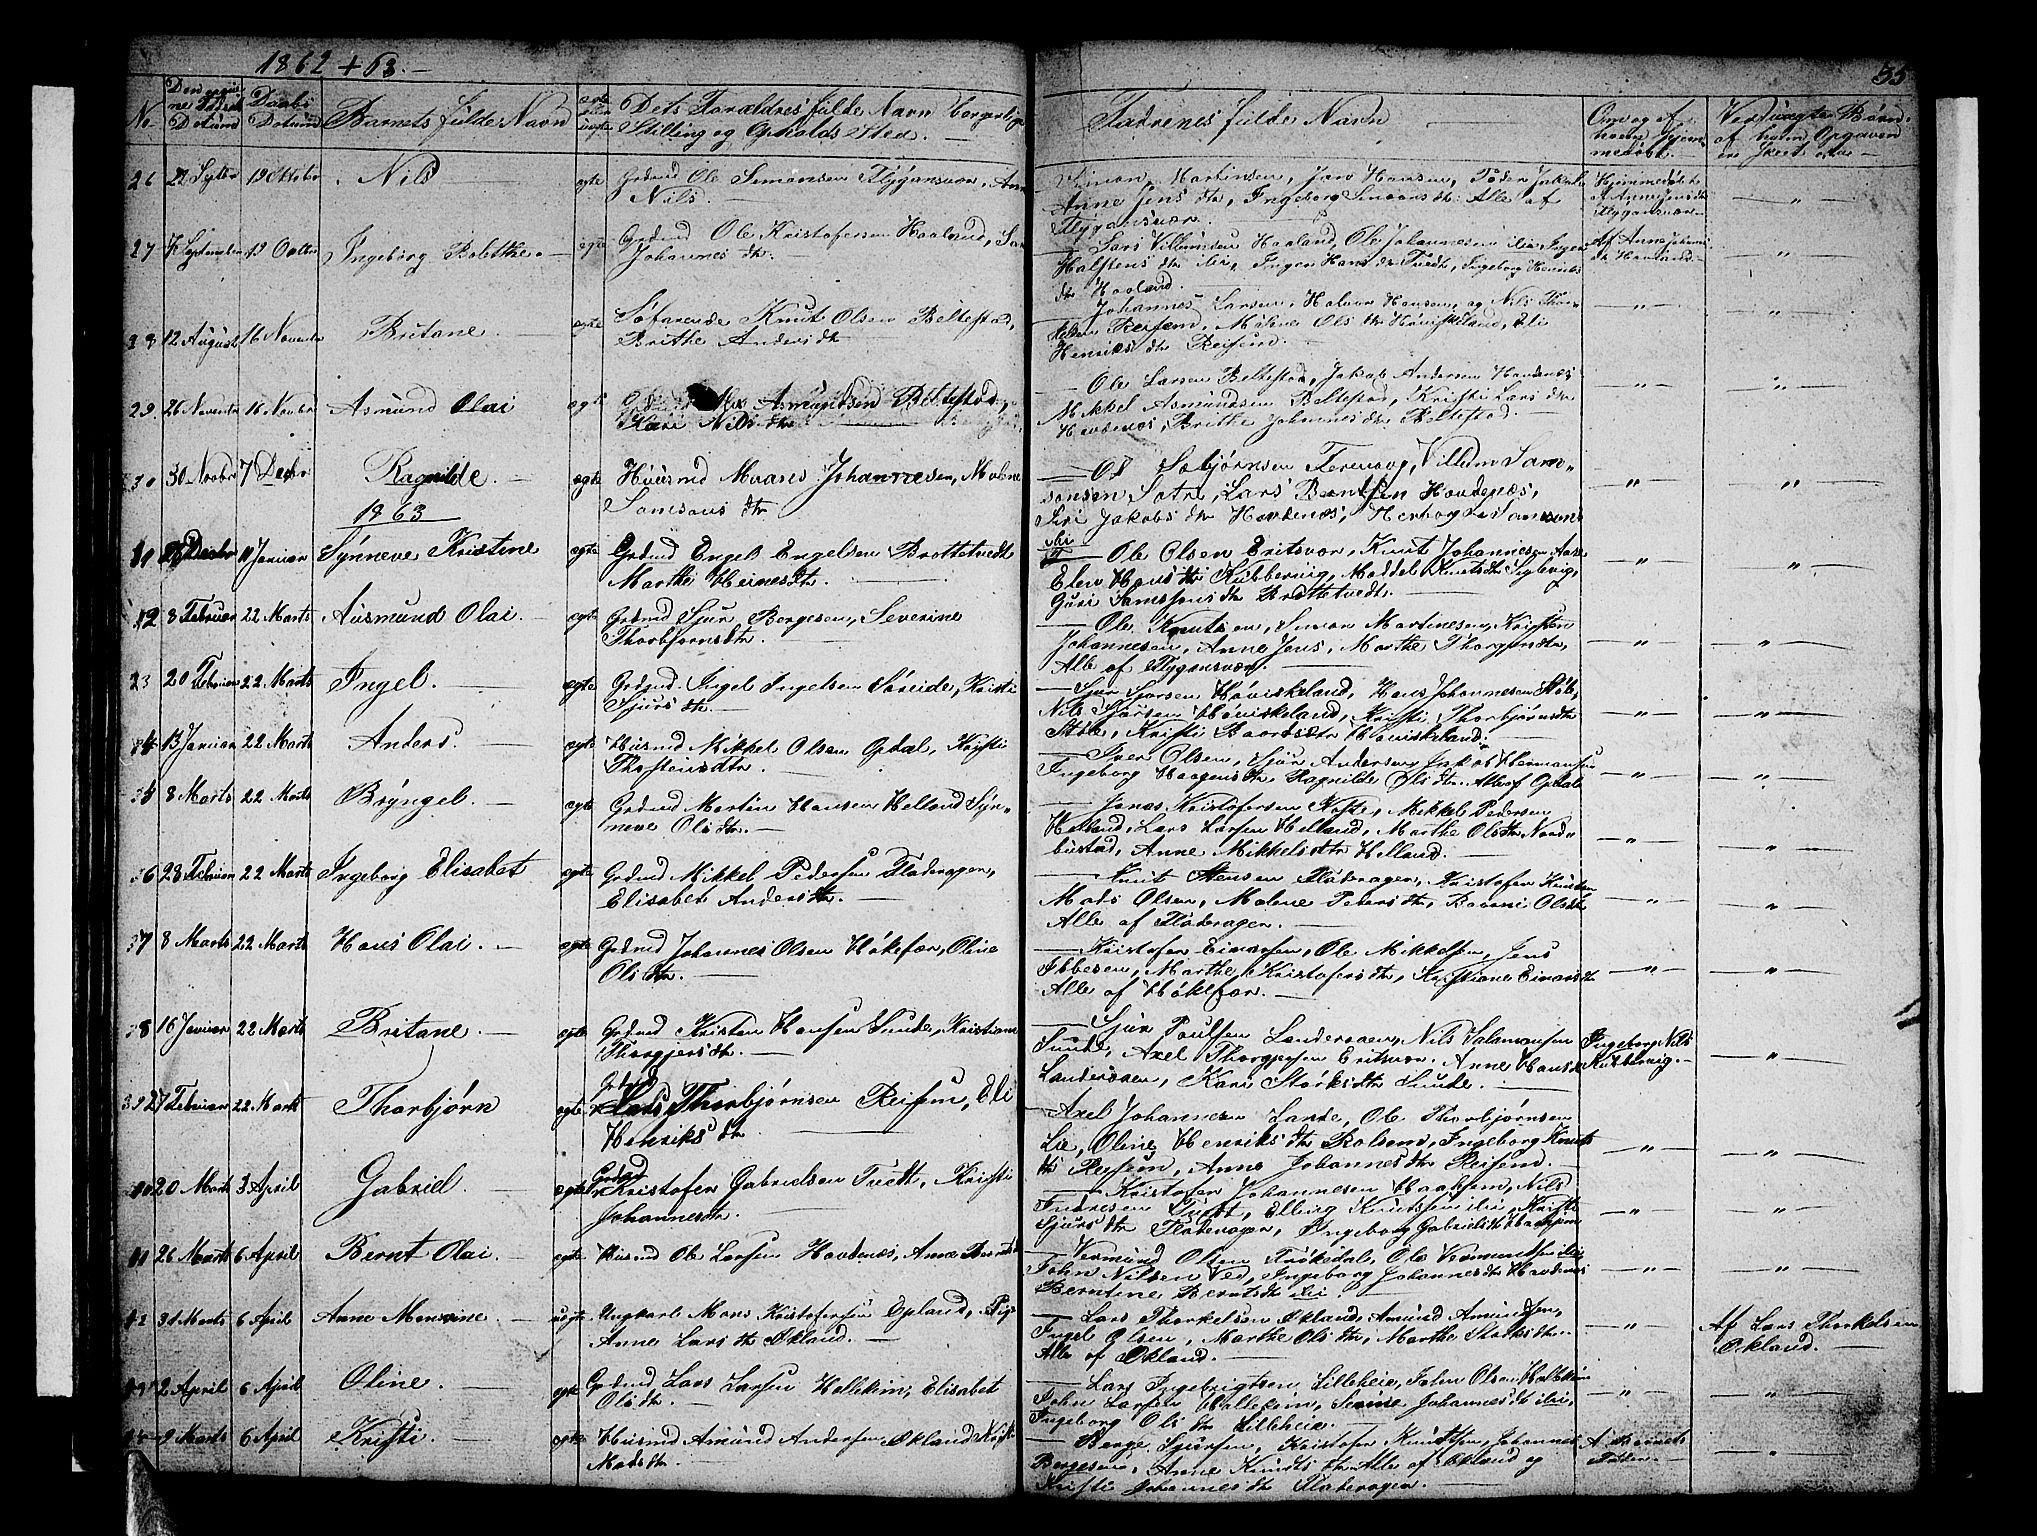 1862 + 63. —
55
No
Den
Fødsels
Datum
Daabs
Datum
Barnets fulde Navn
ægte
eller
uægte
Dets Forældres fulde Navn borgerlige
Stilling og Opholds Sted. —
Fadrenes fulde Navn —
Om og af
hvem hjem-
medøbt.
af hvem Opgaven
26 22 Septbr 19 Oktobr Nils — ægte Grdmd Ole Simonsen Flygansvær, Anne
Nils. —
Simon Martinsen, Jan Hansen, Peder Jakobs
Anne Jens dtr, Ingeborg Simons dtr. Alle af
Flygansvær. —
Hjemmedøbt
af Anne Jens dtr
Flygansvær —
— " —
27 September 19 Octbr Ingeborg Bolethe. — ægte Grdmd Ole Kristofersen Haaland,
Johannes dtr.
— Lars Villumsen Haaland, Ole Johannesen ibi, Inger
Halstens dtr ibi, Inger Hans dtr Tvedt, Ingeborg Henriks
dtr Haaland. —
Af Anne Johans
dtr Haaland —
— " —
28 12 August 16 Novembr Britane. — ægte Søfarende Knut Olsen Beltestad,
Brithe Anders dtr —
Johannes Larsen, Halvor Hansen, og Nils Thor-
kelsen Reisem, Malene Ols dtr Høviskeland, Eli
Henriks dtr Reisem. —
— " —
— " —
29 26 Novembr 16 Novbr Asmund Olai — ægte Asmundsen Beltestad,
Kari Nils dtr —
— Ole Larsen Beltestad, Jakob Andersen Havdenes
Mikkel Asmundsen Beltestad, Kristi Lars dtr
Havdenes, Brithe Johannes dtr Beltestad. —
— " —
— " —
30 30 Novbr 7 Decbr Ragnilde. — ægte Huusmd Maans Johannesen, Malene
Samsons dtr
— Ole Sæbjørnsen Terenvog, Villum Sam-
sonsen Sætre, Lars Berntsen Havdenes,
Siri Jakobs dtr Havdenes, Herborg Samsons
ibi
— " —
— " —
1863
Decbr 11 Januar Synneve Kristine ægte Grdmd Engel Engelsen Brattetvedt
Marthe Heines dtr. —
— Ole Olsen Eritsvær, Knut Johannesen
Elen Hans dtr Kubbervig, Maddel Knuts dtr
Guri Samsons dtr Brattetvedt. —
— " —
— " —
2 8 Februar 22 Marts Ausmund Olai. — ægte Grdmd Sjur Bergesen, Severine
Thorbjørns dtr. —
— Ole Knutsen, Simon Martinesen, Kristen
Johannesen, Anne Jens, Marthe Thorgers dtr,
Alle af Flygansvær. —
— " —
— " —
3 20 Februar 22 Marts Ingel. — ægte Grdmd Ingel Ingelsen Søreide, Kristi
Sjurs dtr. —
— Sjur Sjursen Høviskeland, Hans Johannesen Støle,
Nils Sjursen Høviskeland, Kristi Thorbjørns dtr
Støle, Kristi Baards dtr Høviskeland. —
— " —
— " —
4 13 Januar 22 Marts Anders. — ægte Husmd Mikkel Olsen Opdal, Kristi
Thosteins dtr. —
— Iver Olsen, Sjur Andersen, Jakob Hermansen
Ingeborg Haagens dtr, Ragnilde Ols dtr. Alle af Opdale
— " —
— " —
5 8 Marts 22 Marts Bryngel. — ægte Grdmd Martin Hansen Helland, Syn-
neve Ols dtr. —
— Jonas Kristofersen Nøkte, Mikkel Pedersen
Helland, Lars Larsen Helland, Marthe Ols dtr Nord-
bustad, Anne Mikkels dtr Helland. —
— " —
— " —
6 28 Februar 22 Marts Ingeborg Elisabet ægte Grdmd Mikkel Pedersen Fladeragen,
Elisabet Anders dtr. —
— Knut Stensen Fladeragen, Kristofer Knutsen
Mads Olsen, Malene Peters dtr, Ols dtr
Alle af Fladeragen. —
— " —
— " —
37 8 Marts 22 Marts Hans Olai. — ægte Grdmd Johannes Olsen Høkefær, Oline
Ols dtr. —
— Kristofer Einarsen, Ole Mikkelsen, Jens
Ibbesen, Marthe Kristofers dtr, Kristiane Einars dtr
Alle af Høkefær. —
— " —
— " —
38 16 Januar 22 Marts Britane. — ægte Grdmd Kristen Hansen Sunde, Kristiane
Thorgjers dtr. —
— Sjur Poulsen Landersøen, Nils Salamonsen
Sunde, Axel Thorgersen Eritsvær. Anne Hans dtr
Landersøen, Kari Størks dtr Sunde. —
Ingeborg Nils
Kubbervig. —
— " —
39 27 Februar 22 Marts Thorbjørn ægte Grdmd
Lars Thorbjørnsen Reisem, Eli
Henriks dtr —
— Axel Johannesen Lande, Ole Thorbjørnsen
Lie, Oline Henriks dtr Rolsem, Ingeborg Knuts
dtr Reisem, Anne Johannes dtr Reisem. —
— " —
— " —
40 20 Marts 3 April Gabriel. — ægte Grdmd
Kristofer Gabrielsen Tvedt, Kristi
Johannes dtr. —
— Kristofer Johannesen Haaheim, Nils
Tvedt, Elling Knutsen ibi, Kristi
Sjurs dtr Fladeragen, Ingeborg Gabriels dtr
— " —
— " —
41 26 Marts 6 April Bernt Olai. — ægte Husmd Ole Larsen Havdenes, Anne Bernts dtr
— Vermund Olsen Frøkedale, Ole Vermundsen ibi
John Nilsen Ved, Ingeborg Johannes dtr Havdenes
Berntine Bernts dtr ibi. —
— " —
— " —
42 31 Marts 6 April Anne Monsine. — uægte Ungkarl Mons Kristofersen Epland, Pige
Anne Lars dtr Økland. —
— Lars Thorkelsen Økland, Amund Amundsen,
Ingel Olsen, Marthe Ols dtr, Marthe Størks dtr.
Alle af Økland. —
— " —
Af Lars Thorkelsen
Økland. —
43 2 April 6 April Oline. — ægte Grdmd Lars Larsen Hallekim, Elisabet
Ols dtr. —
— Lars Ingebrigtsen Lilleheie, John Olsen Hallekim
John Larsen Hallekim, Serine Johannes dtr ibi,
Ingeborg Ols dtr Lilleheie. —
— " —
— " —
44 9 Marts 6 April Kristi. — ægte Husmd Amund Andersen Økland
Mads dtr. —
— Berge Sjursen, Kristofer Knutsen, Johannes
Bergesen, Anne Knuts dtr Alle af Økland og
Kristi Johannes dtr Fladeragen. —
Af Barnets
Fader. —
— " —